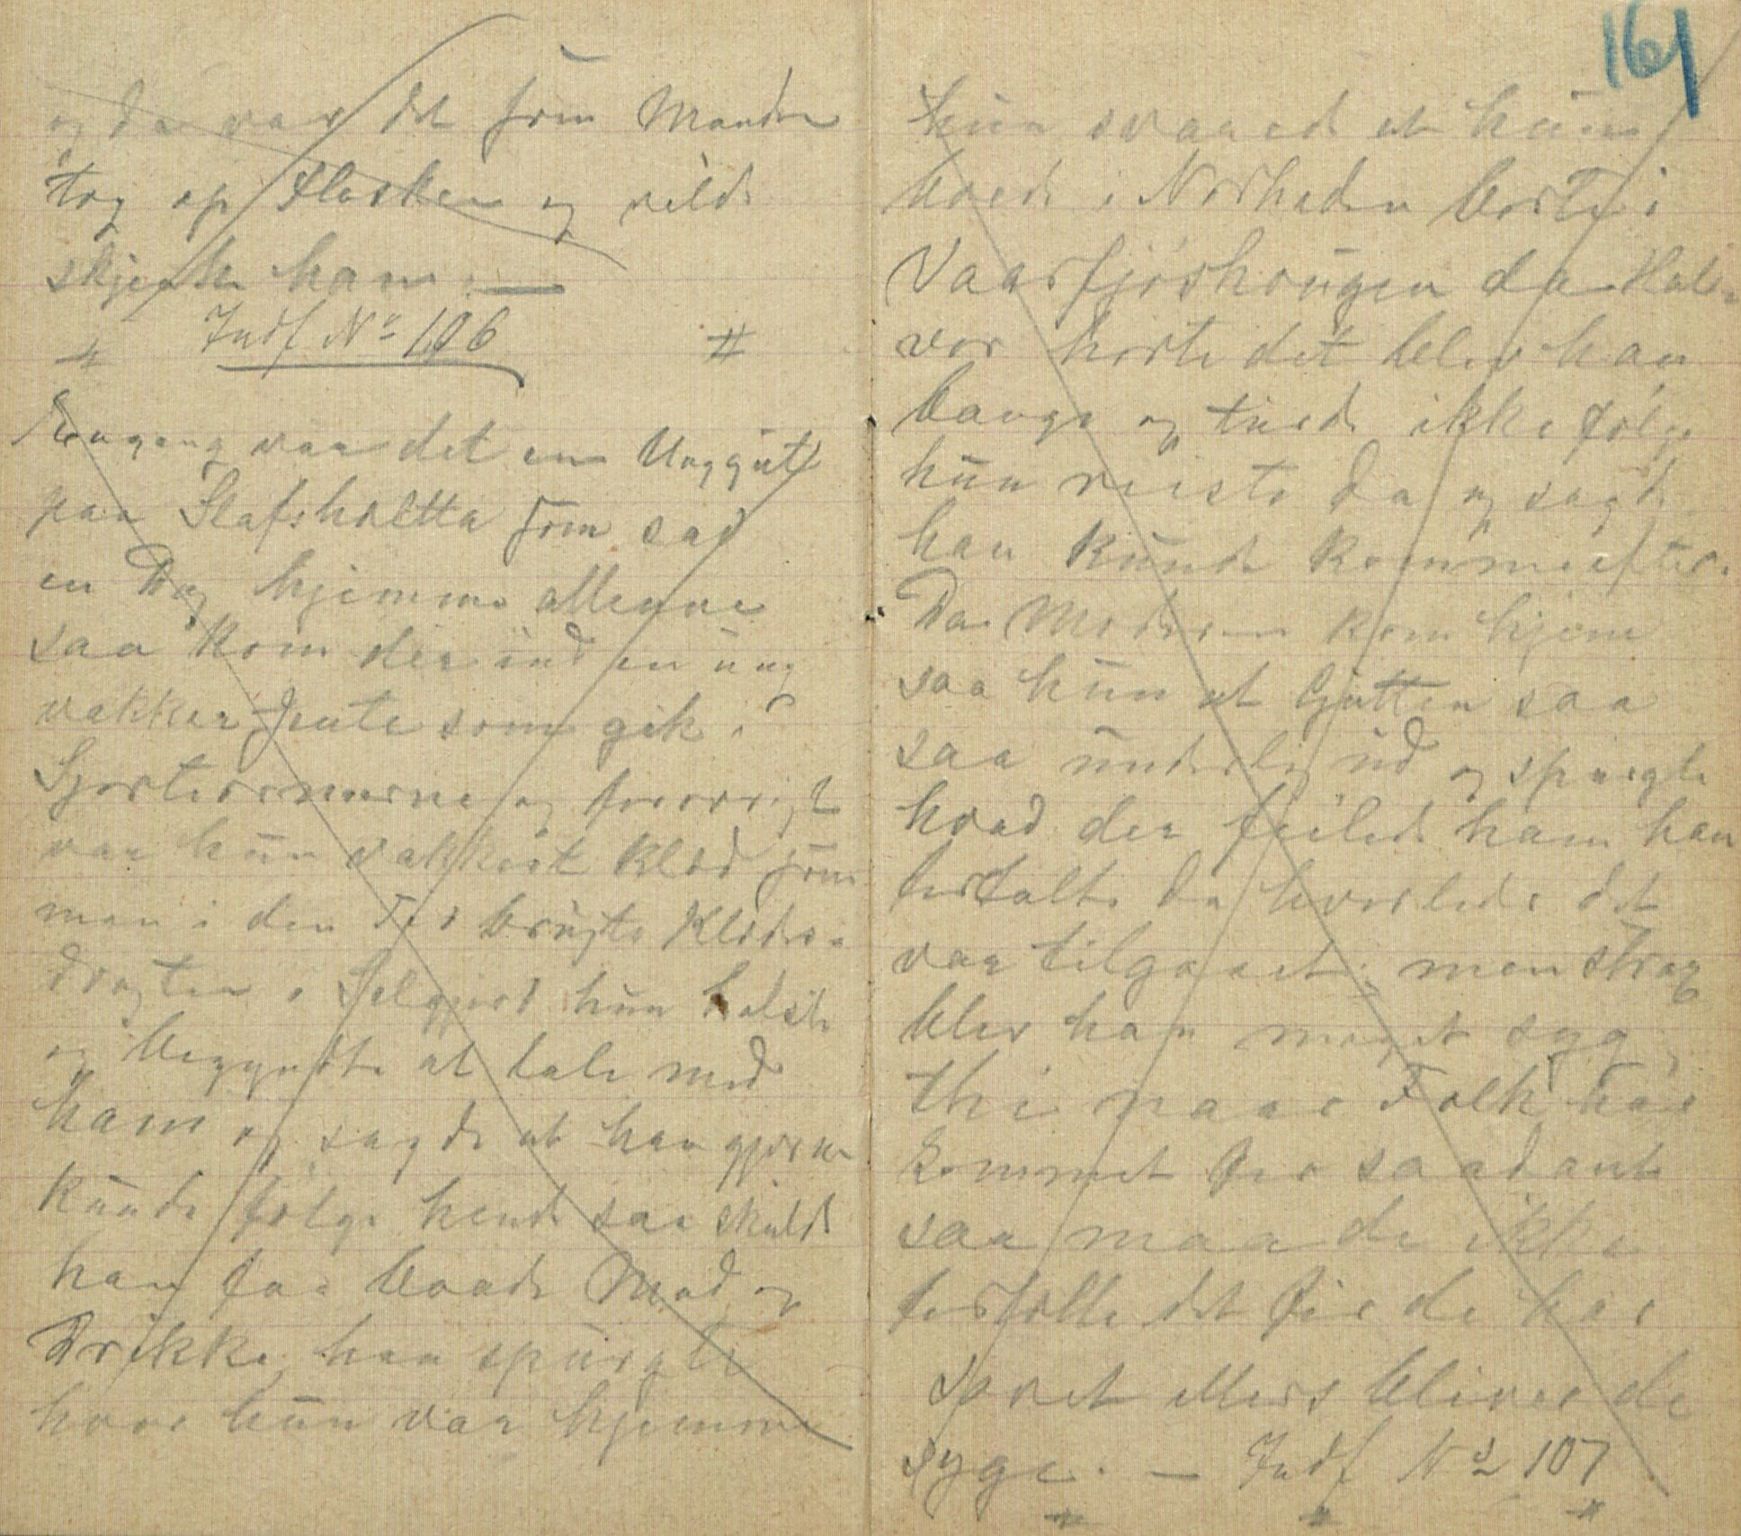 og da var det som Manden
tog op Flasken og vilde
skjenke ham. —
" Indf No 106 #
Engang var det en Unggut
paa Slafsholtta som sad
en Dag hjemme allenne
saa kom der ind en ung
vakker Jente som gik i
Sjorteermerne og forovrigt
var hun vakkert klæd som
man i den Tid brugte Klædes-
dragten i Seljord hun helste
og begyndte at tale med
ham og sagde at han gjerne
kunde følge hende saa skulde
han faa baade Mad og
Drikke han spurgte
hvor hun var hjemme
161
hun svarede at hun
boede i Norheden borte i
Vaarfjøshougen da Hal-
vor horte det blev han
bange og turde ikke følge
hun reiste da og sagde
han kunde komme efter.
Da Moderen kom hjem
saa hun at Gutten saa
saa underlig ud og spurgte
hvad der feilede ham han
fortalte da hvorledes det
var tilgaaet; men strax
blev han meget syg,
thi naar Folk har
kommet for saadant
saa maa de ikke
fortælle det før de har
sovet ellers bliver de
syge. — Indf No 107
# # #